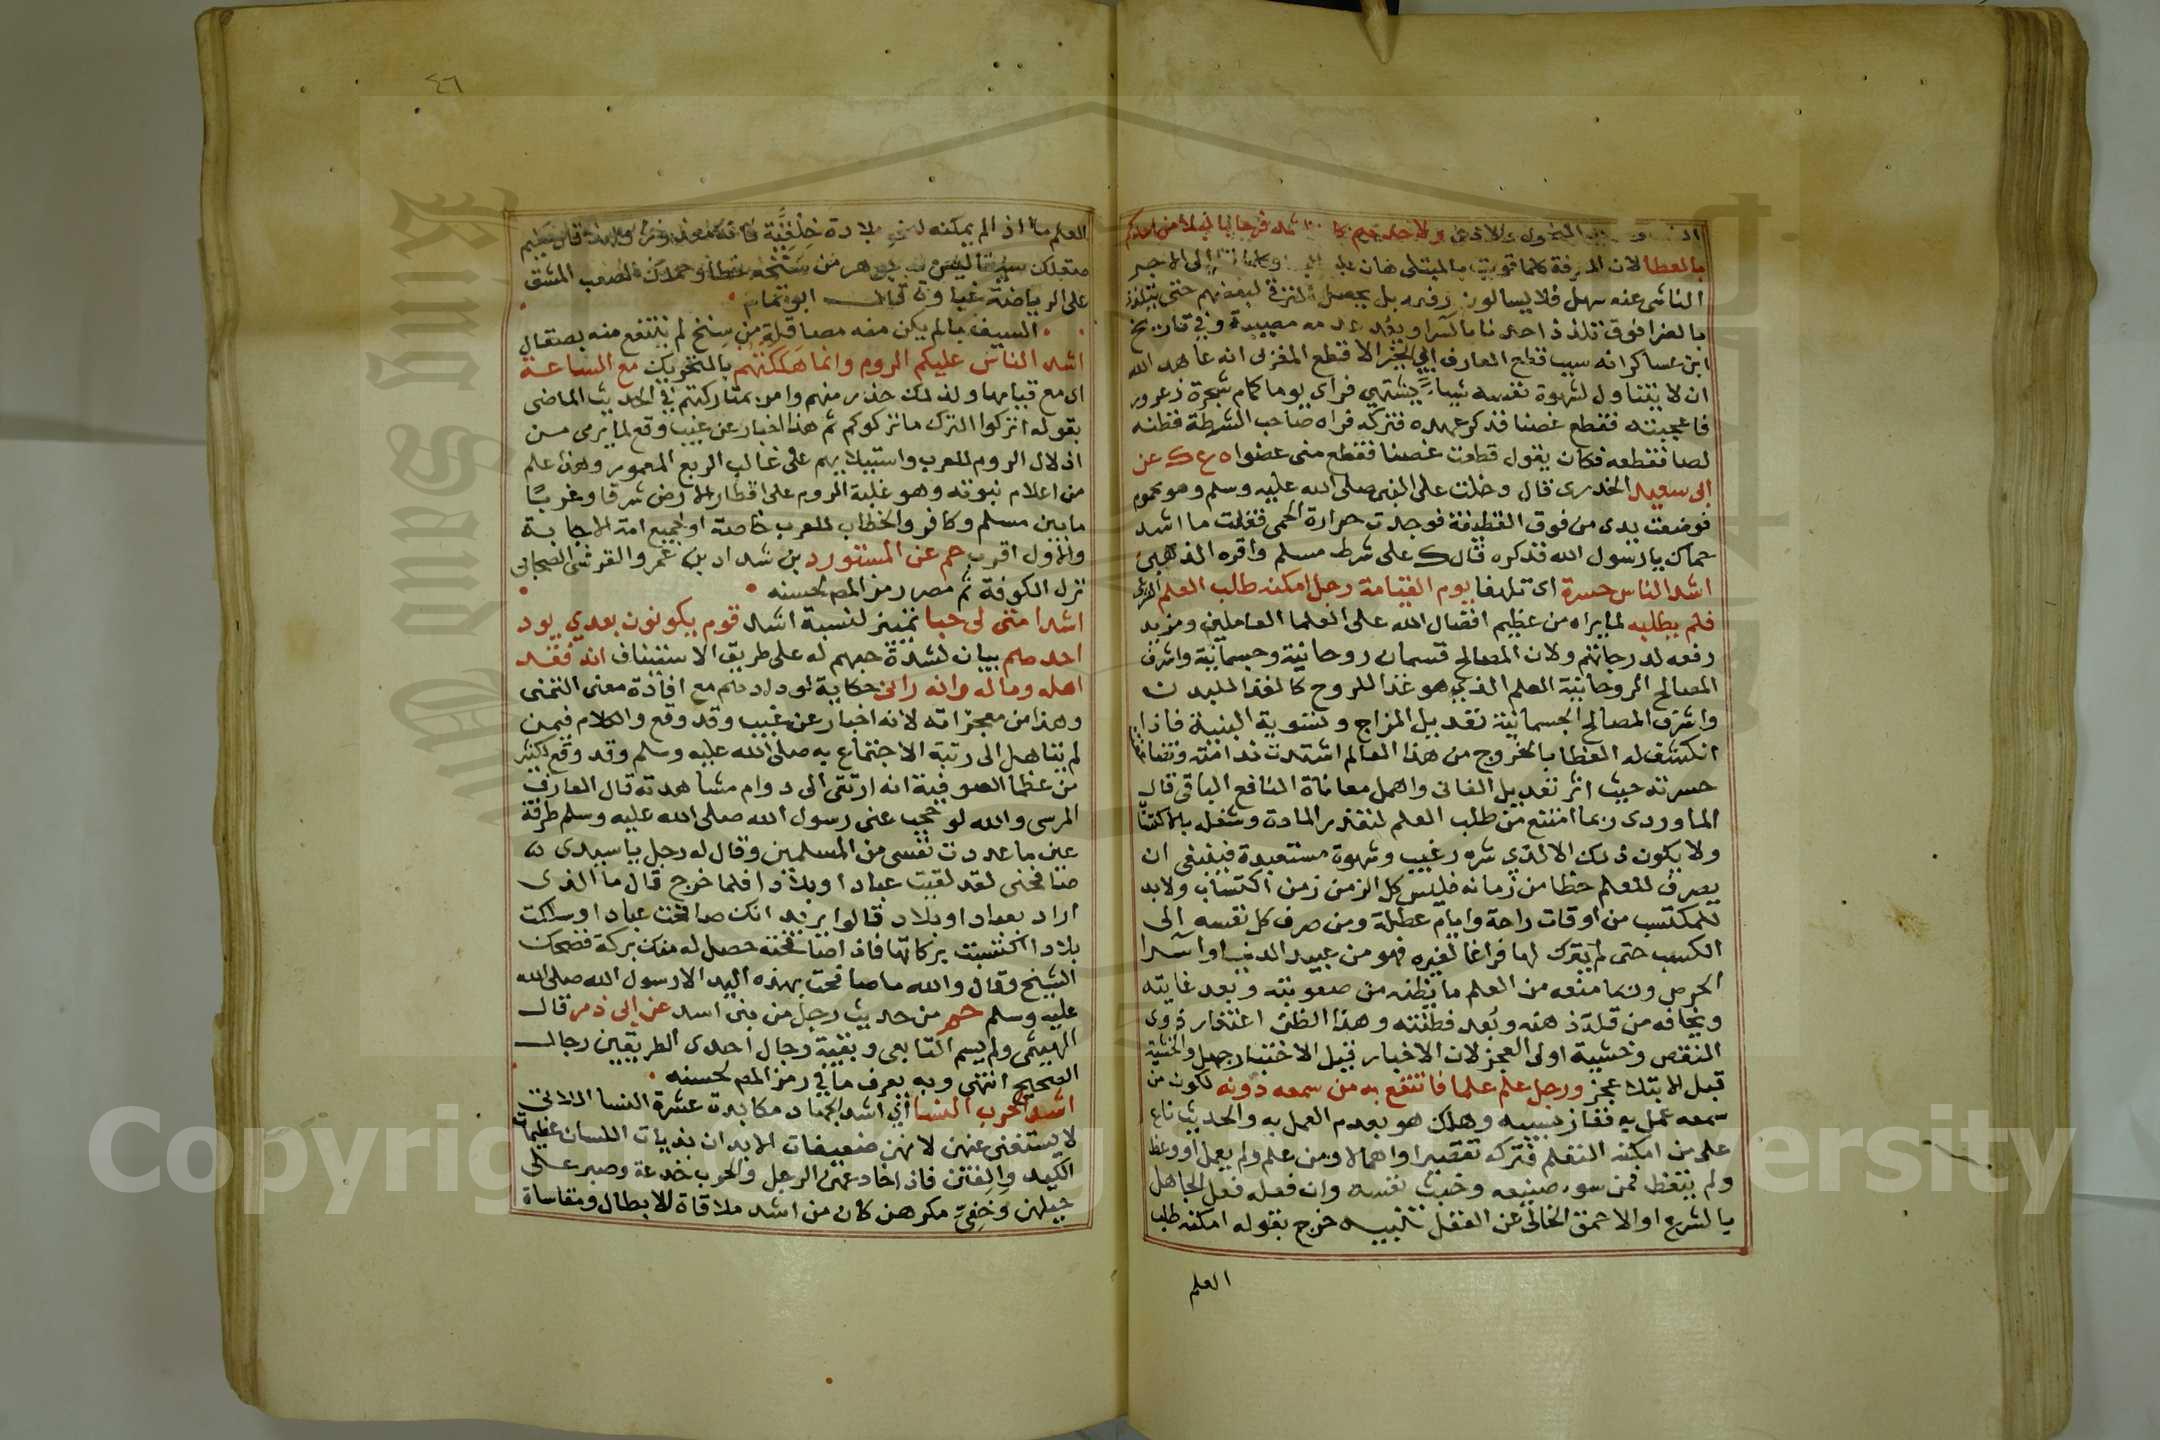 ولاحدهم كا اشد فرحا بالبلا من احدكم
بالعطا لان المعرفة كلما قويت بالمبتلى هان عليه البلا وكلما نظر الى الاجر
الناشى عنه سهل فلا يسالون رفعه بل يحصل الترقي لبعضهم حتى يتلذذ
بالضرا فوق تلذذ احدنا بالسرا ويعد عدمه مصيبة وفي تاريخ
ابن عساكر انه سبب قطع العارف ابي الخير الاقطع المغربى انه عاهد الله
ان لا يتناول لشهوة نفسه شيا يشتهي فراى يوما كام شجرة زعرور
فاعجبته فقطع غصنا فذكر عهده فتركه فراه صاحب الشرطة فظنه
لصا فقطعه فكان يقول قطعت غصنا فقطع منى عضوا ه ع ك عن
ابى سعيد الخدرى قال دخلت على النبى صلى الله عليه وسلم وهو محموم
فوضعت يدى من فوق القطيفة فوجدت حرارة الحمى فقلت ما اشد
حماك يا رسول الله فذكره قال ك على شرط مسلم واقره الذهبى
اشد الناس حسرة اى تلهفا يوم القيامة رجل امكنه طلب العلم الشرعى
فلم يطلبه لما يراه من عظيم افضال الله على العلما العاملين ومزيد
رفعه لدرجاتهم ولان المصالح قسمان روحانية وجسمانية واشرف
المصالح الروحانية العلم الذي هو غذا للروح كالغذا للبدن
واشرف المصالح الجسمانية تعديل المزاج وتسوية البنية فاذا
انكشف له الغطا بالخروج من هذا العالم اشتدت ندامته وتضاعفت
حسرته حيث اثر تعديل الفانى واهمل معاناة النافع الباقى قال
الماوردى ربما امتنع من طلب العلم لتعذر المادة وشغله بالاكتساب
ولا يكون ذلك الا لذي شره رغيب وشهوة مستعبدة فينبغى ان
يصرف للعلم حظا من زمانه فليس كل الزمن زمن اكتساب ولا بد
للمكتسب من اوقات راحة وايام عطلة ومن صرف كل نفسه الى
الكسب حتى لم يترك لها فراغا لغيره فهو من عبيد الدنيا واسرا
الحرص وربما منعه من العلم ما يظنه من صعوبته وبعد غايته
ويخافه من قلة ذهنه وبعد فطنته وهذا الظن اعتذار ذوى
النقص وخشية اولى العجز لان الاخبار قبل الاختبار جهل والخشية
قبل الابتلا عجز ورجل علم علما فانتفع به من سمعه دونه لكون من
سمعه عمل به ففاز بسببه وهلك هو بعدم العمل به والحديث ناع
على من امكنه التعلم فتركه تقصيرا واهمالا ومن علم ولم يعمل او وعظ
ولم يتعظ فمن سوء صنيعه وخبث نفسه وان فعله فعل الجاهل
بالشرع او الاحمق الخالى عن العقل تنبيه خرج بقوله امكنه طلب
العلم
٤٦
العلم ما اذا لم يمكنه لنحو بلادة خلقية فانه معذور
على الرياضة غباوة قال ابو تمام
السيف ما لم يكن منه مصاقلة من سنخ لم ينتفع منه بصقال
اشد الناس عليكم الروم وانما هلكتهم بالتحريك مع الساعة
اى مع قيامها ولذلك حذر منهم وامر بمتاركتهم في الحديث الماضى
بقوله اتركوا الترك ما تركوكم ثم هذا اخبار عن غيب وقع لما يرمى من
اذلال الروم للعرب واستيلايهم على غالب الربع المعمور وهذا علم
من اعلام نبوته وهو غلبة الروم على اقطار الارض شرقا وغربا
ما بين مسلم وكافر والخطاب للعرب خاصة او لجميع امة الاجابة
والاول اقرب حم عن المستورد بن شداد بن عمرو القرشى الصحابى
نزل الكوفة ثم مصر رمز المص لحسنه
اشد امتى لى حبا تمييز لنسبة اشد قوم يكونون بعدي يود
احدهم بيان لشدة حبهم له على طريق الاستيناف انه فقد
اهله وماله وانه رانى حكاية لودادتهم مع افادة معنى التمنى
وهذا من معجزاته لانه اخبار عن غيب وقد وقع والكلام فيمن
لم يتاهل الى رتبة الاجتماع به صلى الله عليه وسلم وقد وقع لكثير
من عظما الصوفية انه ارتقى الى دوام مشاهدته قال العارف
المرسى والله لو حجب عنى رسول الله صلى الله عليه وسلم طرفة
عين ما عددت نفسى من المسلمين وقال له رجل يا سيدى
صافحنى لقد لقيت عبادا وبلادا فلما خرج قال ما الذى
اراد بعباد او بلاد قالوا يريد انك صافحت عبادا وسلكت
بلادا اكتسبت بركاتها فاذا صافحته حصل له منك بركة فضحك
الشيخ وقال والله ما صافحت بهذه اليد الا رسول الله صلى الله
عليه وسلم حم من حديث رجل من بنى اسد عن ابى ذر قال
الهيثمى ولم يسم التابعى وبقية رجال احدى الطريقين رجال
الصحيح انتهى وبه يعرف ما في رمز المص لحسنه
اشد الحرب النسا اي اشد الجهاد مكابدة عشرة النسا اللاتى
لا يستغنى عنهن لانهن ضعيفات الابدان بذيات اللسان عظيمات
الكيد والفتن فاذا خادعهن الرجل والحرب خدعة وصبر على
حيلهن وخفي مكرهن كان من اشد ملاقاة للابطال ومقاساة
Copyright © King Saud University